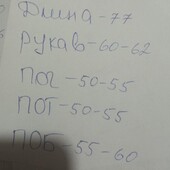 Длина-77
Рукав-60-62
ПОГ-50-55
ПОТ-50-55
ПОБ-55-60